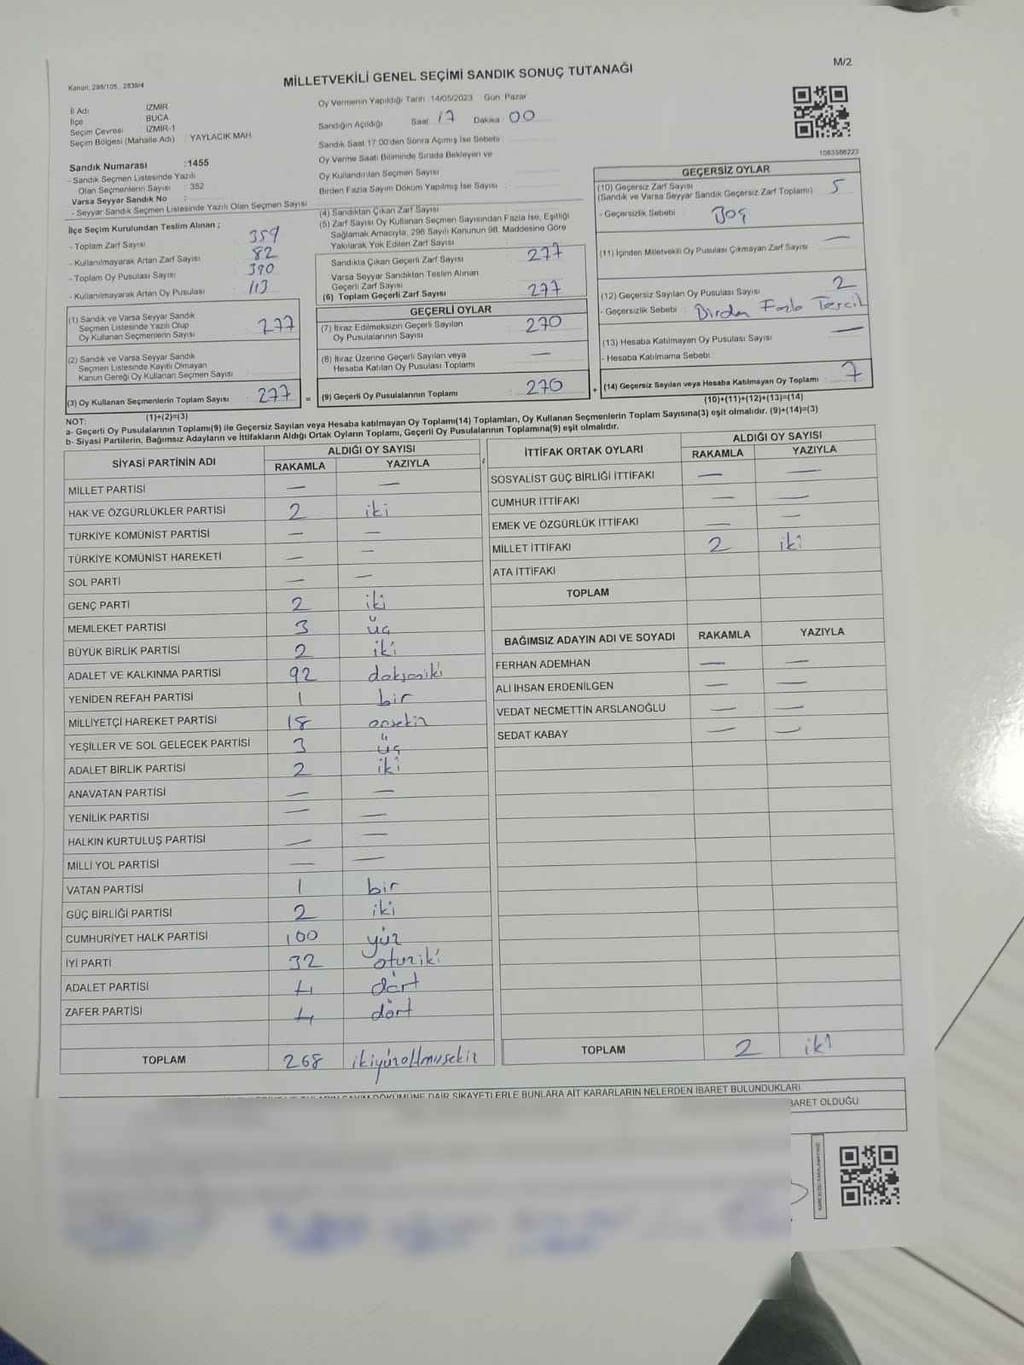 MİLLETVEKİLİ GENEL SEÇİMİ SANDIK SONUÇ TUTANAĞI
M/2
Kanun: 298/105, 2839/4
İl Adı İZMİR
İlçe BUCA
Seçim Çevresi İZMİR-1
Seçim Bölgesi (Mahalle Adı) : YAYLACIK MAH
Sandık Numarası :1455
- Sandık Seçmen Listesinde Yazılı
Olan Seçmenlerin Sayısı : 352
Varsa Seyyar Sandık No :
- Seyyar Sandık Seçmen Listesinde Yazılı Olan Seçmen Sayısı
Oy Vermenin Yapıldığı Tarih 14/05/2023 Gün Pazar
Sandığın Açıldığı Saat 17 Dakika 00
Sandık Saat 17.00'den Sonra Açımış İse Sebebi
Oy Verme Saati Bitiminde Sırada Bekleyen ve
Oy Kullandırılan Seçmen Sayısı
Birden Fazla Sayım Döküm Yapılmış İse Sayısı
1083586223
İlçe Seçim Kurulundan Teslim Alınan ;
- Toplam Zarf Sayısı 359
- Kullanılmayarak Artan Zarf Sayısı 82
- Toplam Oy Pusulası Sayısı 390
- Kullanılmayarak Artan Oy Pusulası 113
(1) Sandık ve Varsa Seyyar Sandık
Seçmen Listesinde Yazılı Olup
Oy Kullanan Seçmenlerin Sayısı 277
(2) Sandık ve Varsa Seyyar Sandık
Seçmen Listesinde Kayıtlı Olmayan
Kanun Gereği Oy Kullanan Seçmen Sayısı
(3) Oy Kullanan Seçmenlerin Toplam Sayısı : 277
(1)+(2)=(3)
(4) Sandıktan Çıkan Zarf Sayısı
(5) Zarf Sayısı Oy Kullanan Seçmen Sayısından Fazla İse, Eşitliği
Sağlamak Amacıyla, 298 Sayılı Kanunun 98. Maddesine Göre
Yakılarak Yok Edilen Zarf Sayısı
Sandıkta Çıkan Geçerli Zarf Sayısı 277
Varsa Seyyar Sandıktan Teslim Alınan
Geçerli Zarf Sayısı
(6) Toplam Geçerli Zarf Sayısı 277
GEÇERLİ OYLAR
(7) İtiraz Edilmeksizin Geçerli Sayılan
Oy Pusulalarının Sayısı 270
(8) İtiraz Üzerine Geçerli Sayılan veya
Hesaba Katılan Oy Pusulası Toplamı —
(9) Geçerli Oy Pusulalarının Toplamı 270
GEÇERSİZ OYLAR
(10) Geçersiz Zarf Sayısı
(Sandık ve Varsa Seyyar Sandık Geçersiz Zarf Toplamı) 5
- Geçersizlik Sebebi : Boş
(11) İçinden Milletvekili Oy Pusulası Çıkmayan Zarf Sayısı —
(12) Geçersiz Sayılan Oy Pusulası Sayısı 2
- Geçersizlik Sebebi : Birden Fazla Tercih
(13) Hesaba Katılmayan Oy Pusulası Sayısı —
- Hesaba Katılmama Sebebi
(14) Geçersiz Sayılan veya Hesaba Katılmayan Oy Toplamı : 7
(10)+(11)+(12)+(13)=(14)
NOT:
a- Geçerli Oy Pusulalarının Toplamı(9) ile Geçersiz Sayılan veya Hesaba katılmayan Oy Toplamı(14) Toplamları, Oy Kullanan Seçmenlerin Toplam Sayısına(3) eşit olmalıdır. (9)+(14)=(3)
b- Siyasi Partilerin, Bağımsız Adayların ve İttifakların Aldığı Ortak Oyların Toplamı, Geçerli Oy Pusulalarının Toplamına(9) eşit olmalıdır.
SİYASİ PARTİNİN ADI ALDIĞI OY SAYISI
RAKAMLA YAZIYLA
MİLLET PARTİSİ — —
HAK VE ÖZGÜRLÜKLER PARTİSİ 2 iki
TÜRKİYE KOMÜNİST PARTİSİ — —
TÜRKİYE KOMÜNİST HAREKETİ — —
SOL PARTİ — —
GENÇ PARTİ 2 iki
MEMLEKET PARTİSİ 3 üç
BÜYÜK BİRLİK PARTİSİ 2 iki
ADALET VE KALKINMA PARTİSİ 92 doksaniki
YENİDEN REFAH PARTİSİ 1 bir
MİLLİYETÇİ HAREKET PARTİSİ 18 onsekiz
YEŞİLLER VE SOL GELECEK PARTİSİ 3 üç
ADALET BİRLİK PARTİSİ 2 iki
ANAVATAN PARTİSİ — —
YENİLİK PARTİSİ — —
HALKIN KURTULUŞ PARTİSİ — —
MİLLİ YOL PARTİSİ — —
VATAN PARTİSİ 1 bir
GÜÇ BİRLİĞİ PARTİSİ 2 iki
CUMHURİYET HALK PARTİSİ 100 yüz
İYİ PARTİ 32 otuziki
ADALET PARTİSİ 4 dört
ZAFER PARTİSİ 4 dört
TOPLAM 268 ikiyüzaltmışsekiz
İTTİFAK ORTAK OYLARI ALDIĞI OY SAYISI
RAKAMLA YAZIYLA
SOSYALİST GÜÇ BİRLİĞİ İTTİFAKI — —
CUMHUR İTTİFAKI — —
EMEK VE ÖZGÜRLÜK İTTİFAKI — —
MİLLET İTTİFAKI 2 iki
ATA İTTİFAKI
TOPLAM
BAĞIMSIZ ADAYIN ADI VE SOYADI RAKAMLA YAZIYLA
FERHAN ADEMHAN — —
ALİ İHSAN ERDENİLGEN — —
VEDAT NECMETTİN ARSLANOĞLU — —
SEDAT KABAY — —
TOPLAM 2 iki
DÖKÜMÜNE DAİR ŞİKAYETLERLE BUNLARA AİT KARARLARIN NELERDEN İBARET BULUNDUKLARI
BARET OLDUĞU